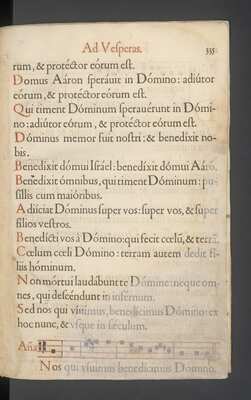 Ad Vesperas. 335
rum, & protéctor eórum est.
Domus Aáron sperávit in Dómino: adiútor
eórum, & protéctor eórum est.
Qui timent Dóminum speravérunt in Dómi-
no: adiútor eórum, & protéctor eórum est.
Dóminus memor fuit nostri: & benedíxit no-
bis.
Benedíxit dómui Israél: benedíxit dómui Aáro.
Benedíxit ómnibus, qui timent Dóminum: pu-
síllis cum maióribus.
Adiíciat Dóminus super vos: super vos, & super
fílios vestros.
Benedícti vos à Dómino: qui fecit cœlũ, & terrã.
Cœlum cœli Dómino: terram autem dedit fí-
liis hóminum.
Non mórtui laudábunt te Dómine: neque om-
nes, qui descéndunt in inférnum.
Sed nos qui vívimus, benedícimus Dómino: ex
hoc nunc, & vsque in sæculum.
Aña
Nos qui viuimus benedicamus Domino.